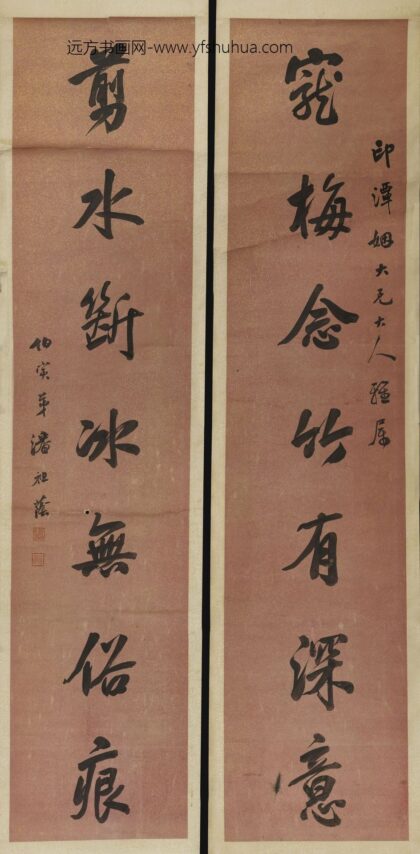 远方书画网-www.yfshuhua.com
印潭姻大兄大人雅属
寵梅念竹有深意
剪水斷冰無俗痕
伯寅弟潘祖蔭